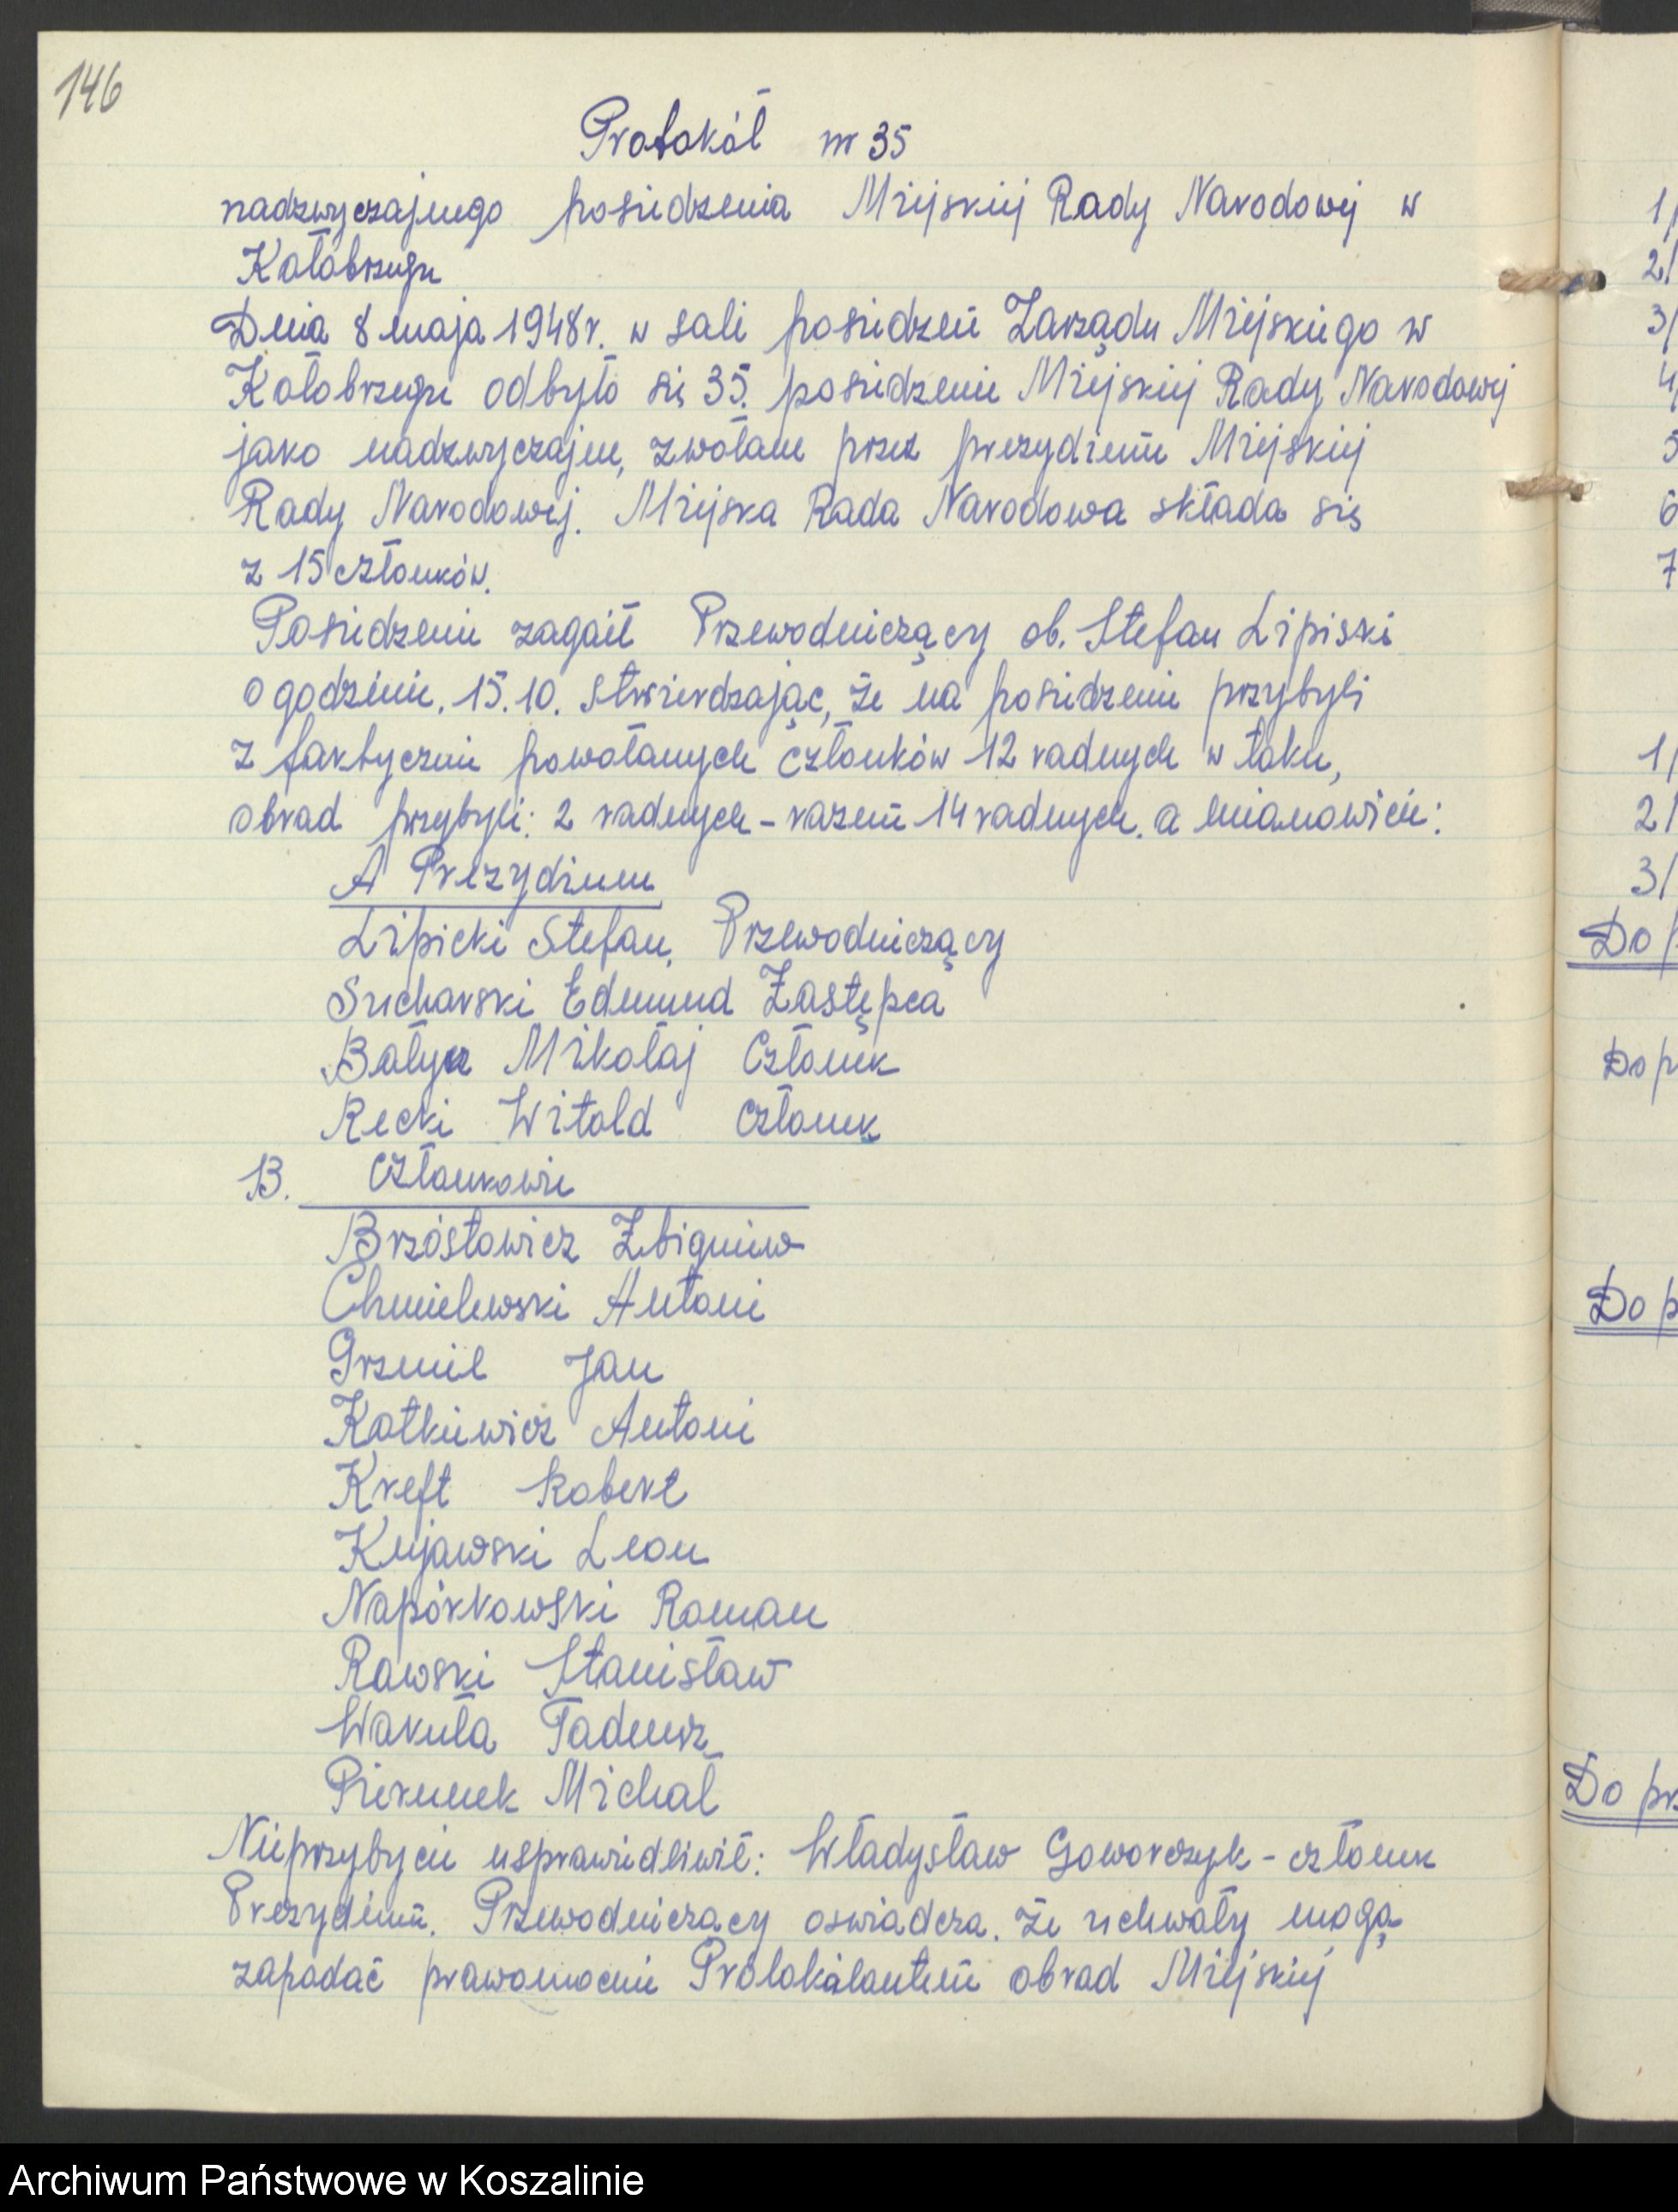 146
Protokół nr 35
nadzwyczajnego posiedzenia Miejskiej Rady Narodowej w
Kołobrzegu
Dnia 8 maja 1948 r. w sali posiedzeń Zarządu Miejskiego w
Kołobrzegu odbyło się 35. posiedzenie Miejskiej Rady Narodowej
jako nadzwyczajne, zwołane przez prezydium Miejskiej
Rady Narodowej. Miejska Rada Narodowa składa się
z 15 członków.
Posiedzenie zagaił Przewodniczący ob. Stefan Lipiski
o godzinie. 15.10. stwierdzając, że na posiedzenie przybyli
z faktycznie powołanych członków 12 radnych w toku,
obrad przybyli: 2 radnych - razem 14 radnych. a mianowicie:
A Prezydium
Lipicki Stefan, Przewodniczący
Sucharski Edmund Zastępca
Mikołaj Członek
Recki Witold Członek
B. Członkowie
Brzóstowicz Zbigniew
Chmielewski Antoni
Grzmil Jan
Kotkiewicz Antoni
Kreft Robert
Kujawski Leon
Napórkowski Roman
Rawski Stanisław
Wakuła Tadeusz
Michał
Nieprzybycie usprawiedliwił: Władysław Goworczyk - członek
Prezydium. Przewodniczący oswiadcza. że uchwały mogą
zapadać prawomocnie Protokólantem obrad Miejskiej
1/
2/
3/
4/
5
6
7
1/
2/
3/
Do p
Do p
Do p
Do prz
Archiwum Państwowe w Koszalinie